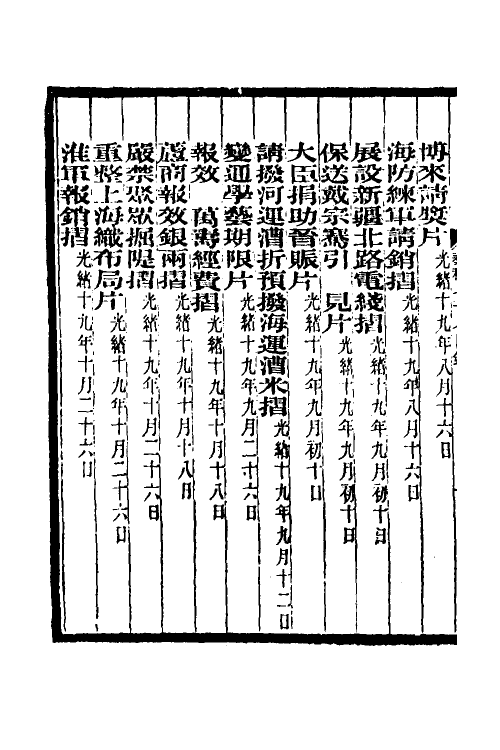 博來請獎片光緒十九年八月十六日
海防練軍請銷摺光緒十九年八月十六日
展設新疆北路電綫摺光緒十九年九月初十日
保送戴宗騫引　見片光緒十九年九月初十日
大臣捐助晉賑片光緒十九年九月初十日
請撥河運漕折預撥海運漕米摺光緒十九年九月十二日
變通學藝期限片光緒十九年九月二十六日
報效　萬壽經費摺光緒十九年十月十八日
蘆商報效銀兩摺光緒十九年十月十八日
嚴禁聚眾掘隄摺光緒十九年十月二十六日
重整上海織布局片光緒十九年十月二十六日
淮軍報銷摺光緒十九年十月二十六日